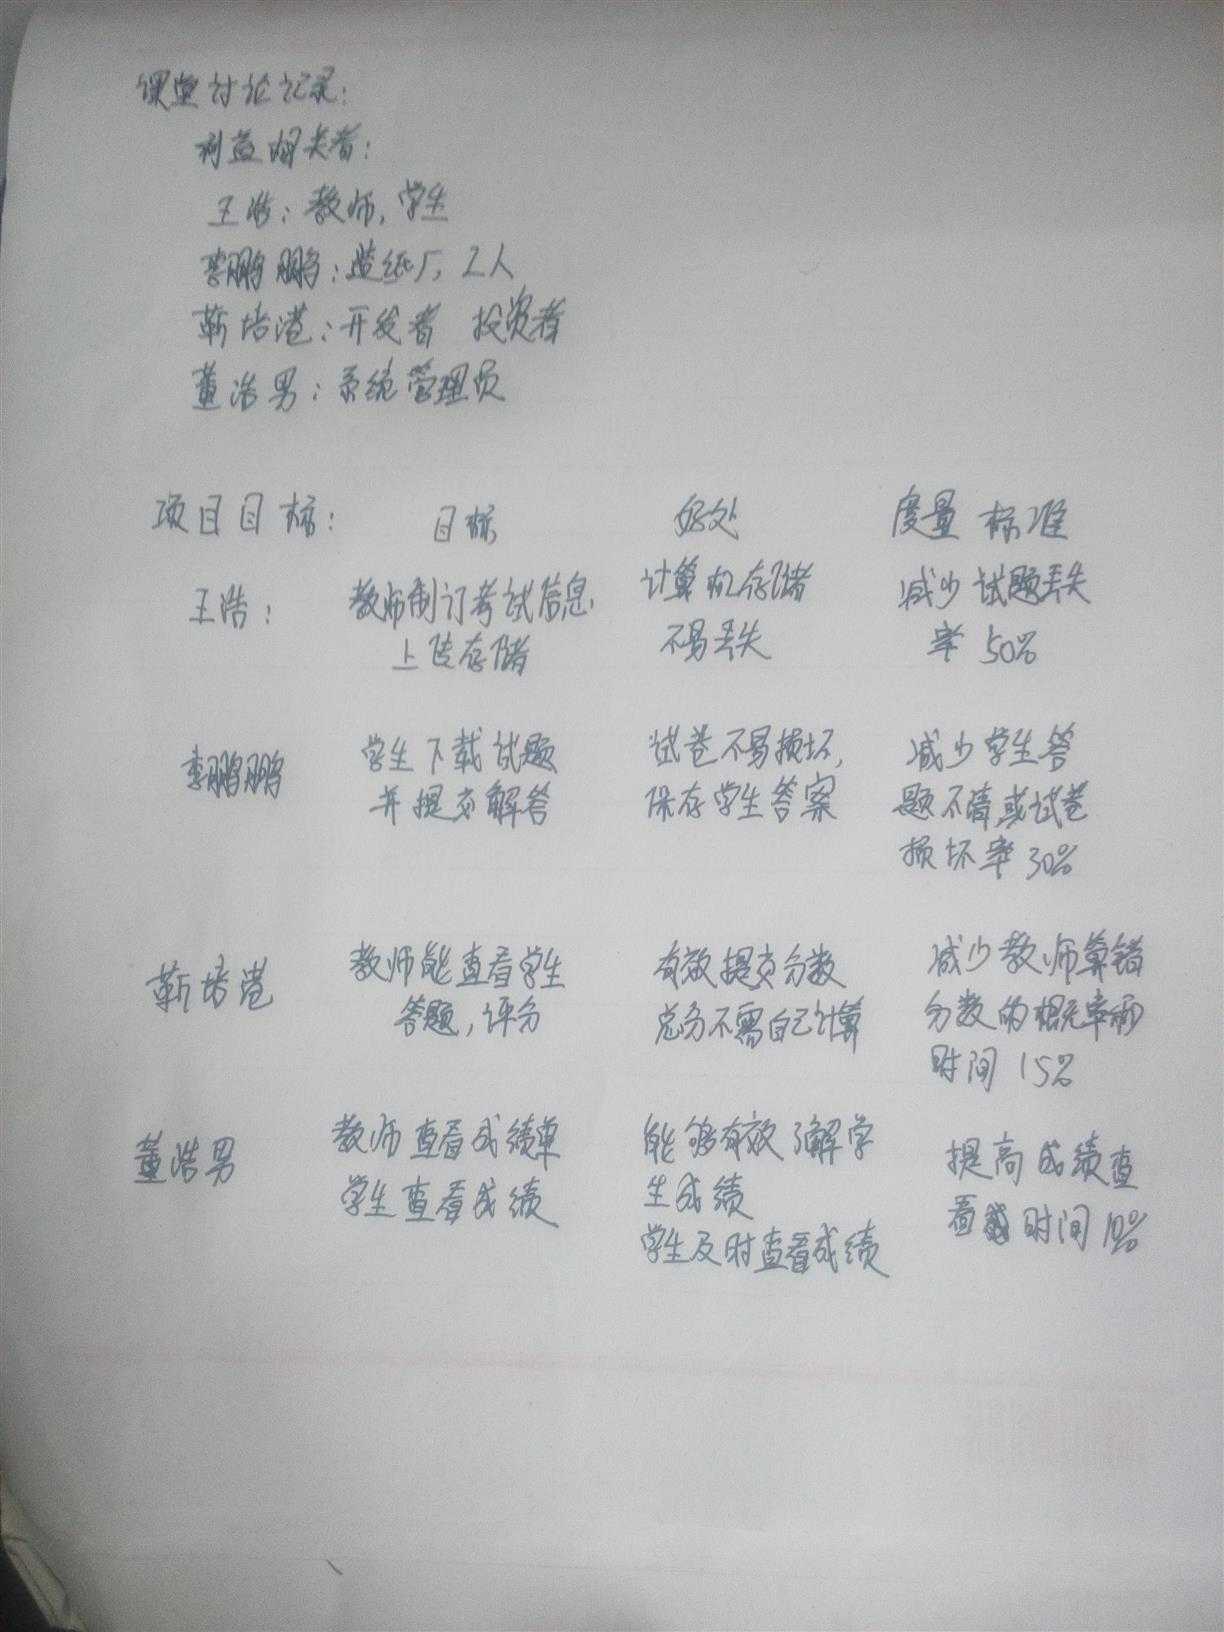 课堂讨论记录:
利益相关者:
王浩: 教师, 学生
李鹏鹏: 造纸厂, 工人
靳培港: 开发者 投资者
董浩男: 系统管理员
项目目标: 目标 好处 度量标准
王浩: 教师制订考试信息 计算机存储 减少试题丢失
上传存储 不易丢失 率50%
李鹏鹏 学生下载试题 试卷不易损坏, 减少学生答
并提交解答 保存学生答案 题不清,或试卷
损坏率30%
靳培港 教师能查看学生 有效提交分数 减少教师算错
答题, 评分 总分不需自己计算 分数的概率和
时间15%
董浩男 教师查看成绩单 能够有效了解学 提高成绩查
学生查看成绩 生成绩 看时间10%
学生及时查看成绩